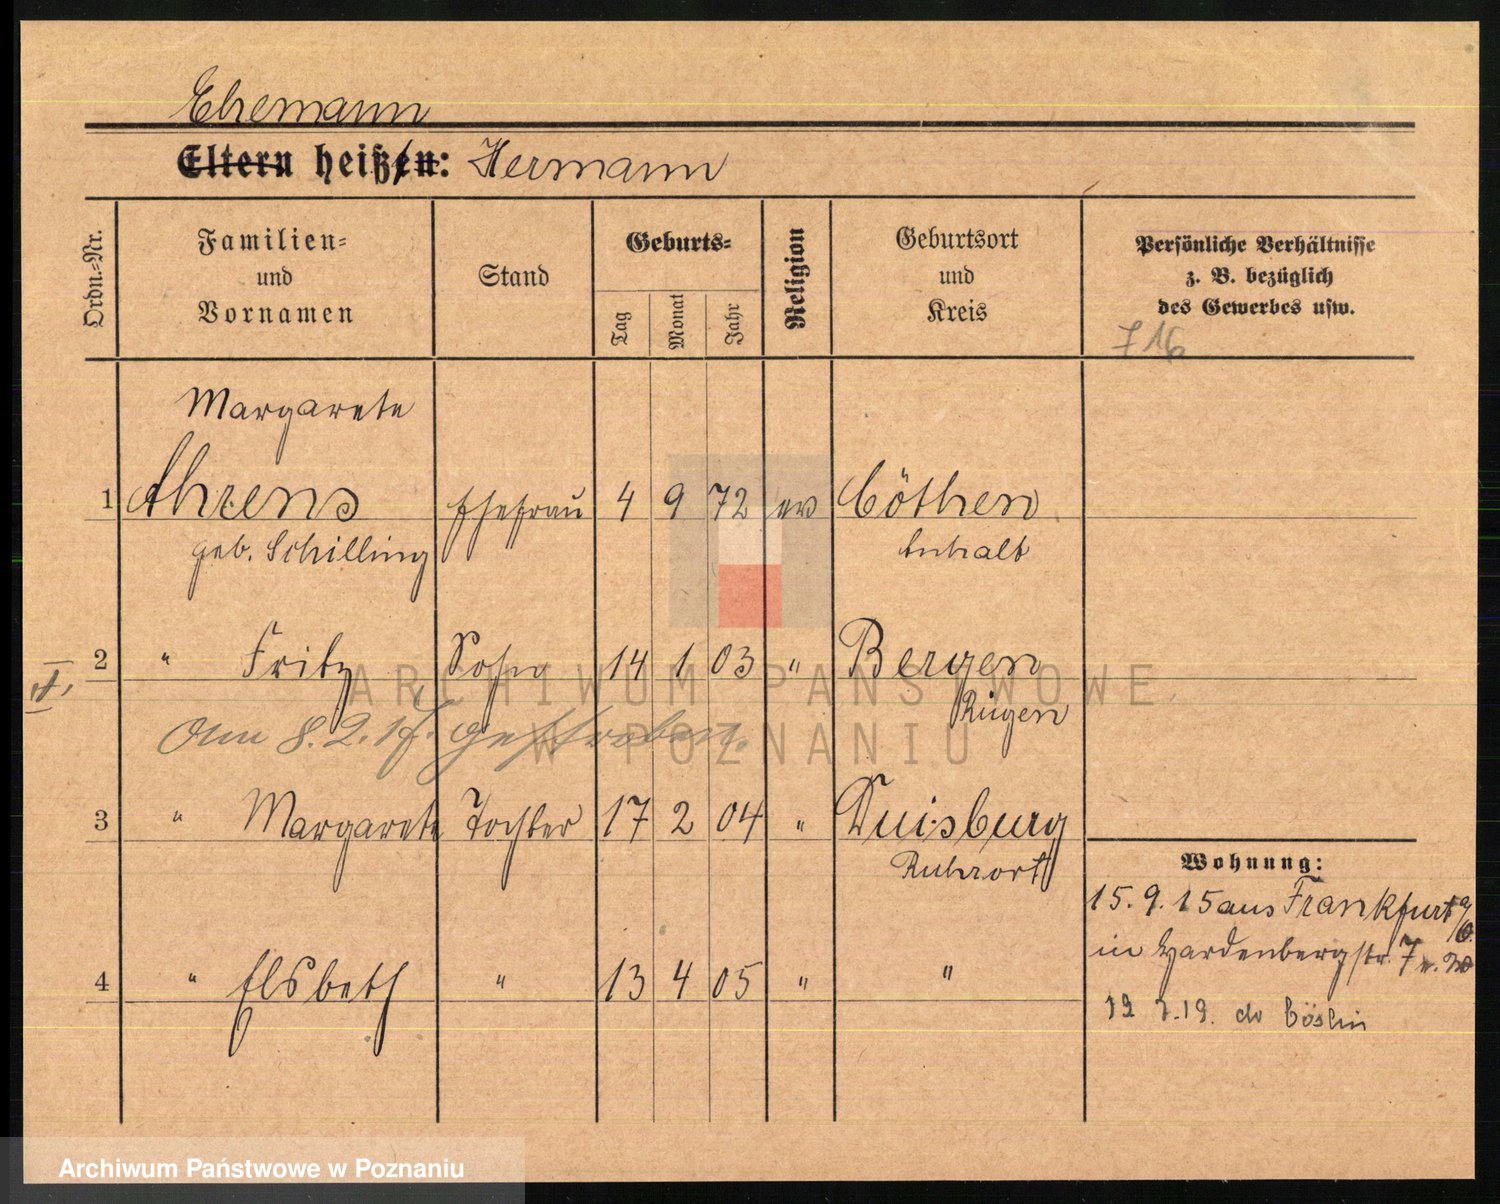 Ehemann
Eltern heißen: Hermann
Ordn.-Nr.
Familien-
und
Vornamen
Stand
Geburts-
Tag
Monat
Jahr
Religion
Geburtsort
und
Kreis
Persönliche Verhältnisse
z. B. bezüglich
des Gewerbes usw.
716
Margarete
1 Ahrens Ehefrau 4 9 72 ev Cöthen
geb. Schilling Anhalt
2 " Fritz Sohn 14 1 03 " Bergen
Rügen
Am 8.2.17. gestorben.
3 " Margarete Tochter 17 2 04 " Duisburg
Ruhrort
4 " Elsbeth " 13 4 05 " "
Wohnung:
15.9.15 aus Frankfurt a/O.
in Hardenbergstr. 7
19. do Cöslin
ARCHIWUM PAŃSTWOWE
W POZNANIU
Archiwum Państwowe w Poznaniu